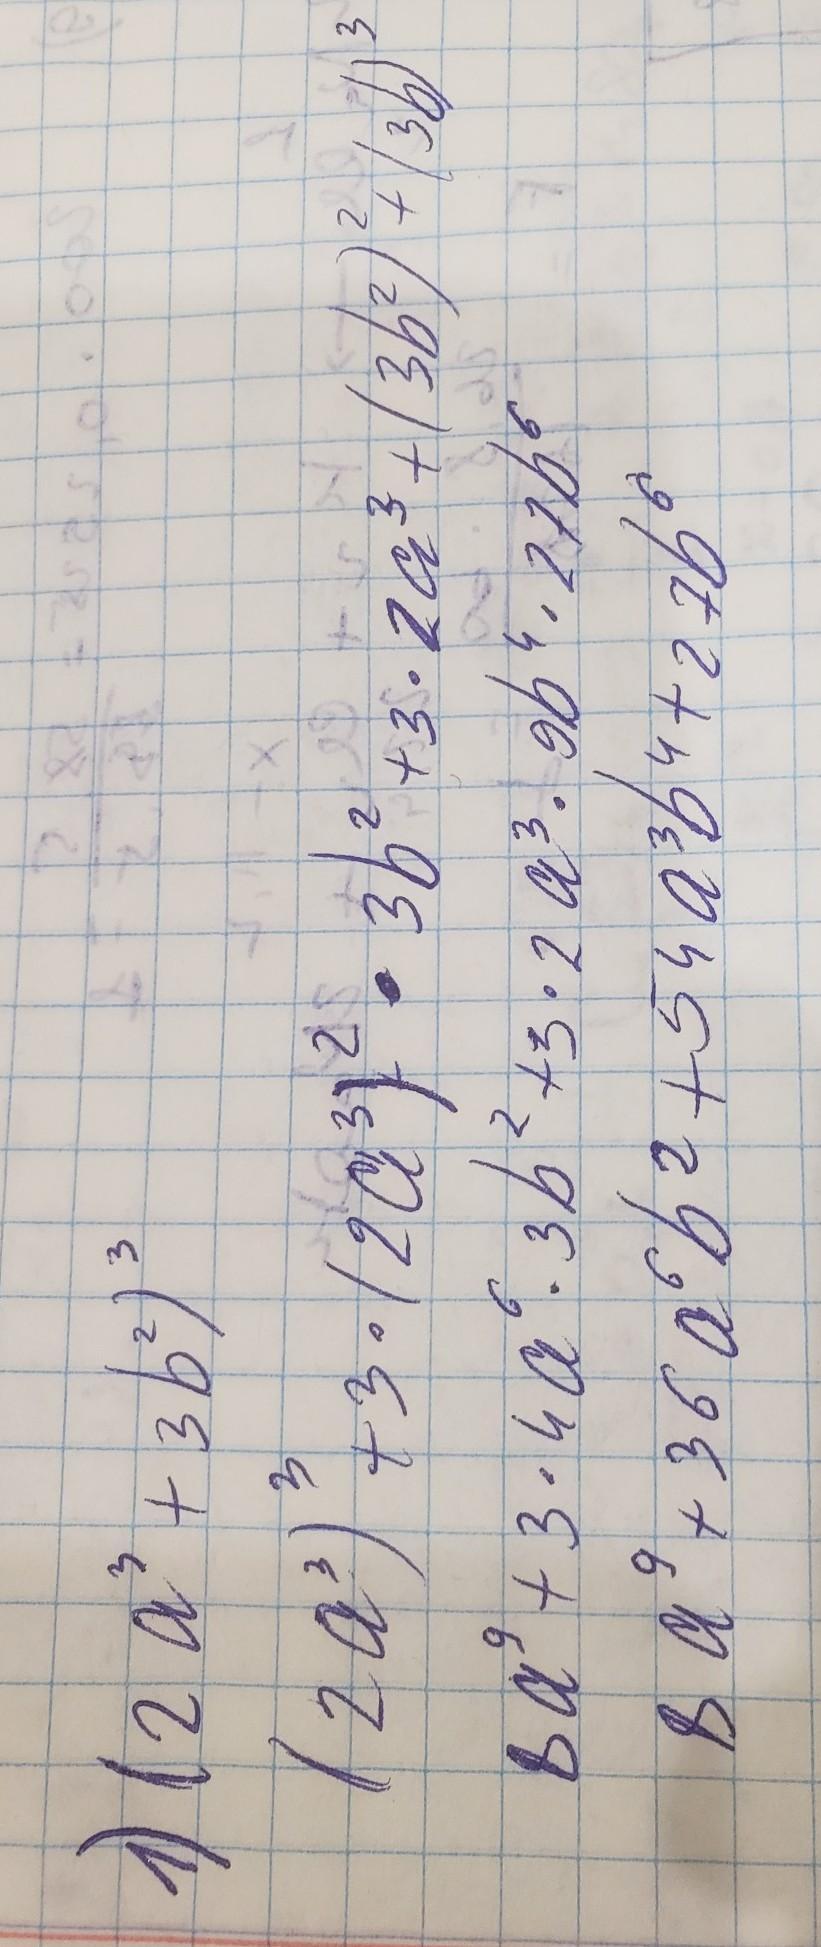 1) (2a³ + 3b²)³
(2a³)³ + 3·(2a³)² · 3b² + 3·2a³ + (3b²)² + (3b)³
8a⁹ + 3·4a⁶·3b² + 3·2a³·9b⁴·27b⁶
8a⁹ + 36a⁶b² + 54a³b⁴ + 27b⁶